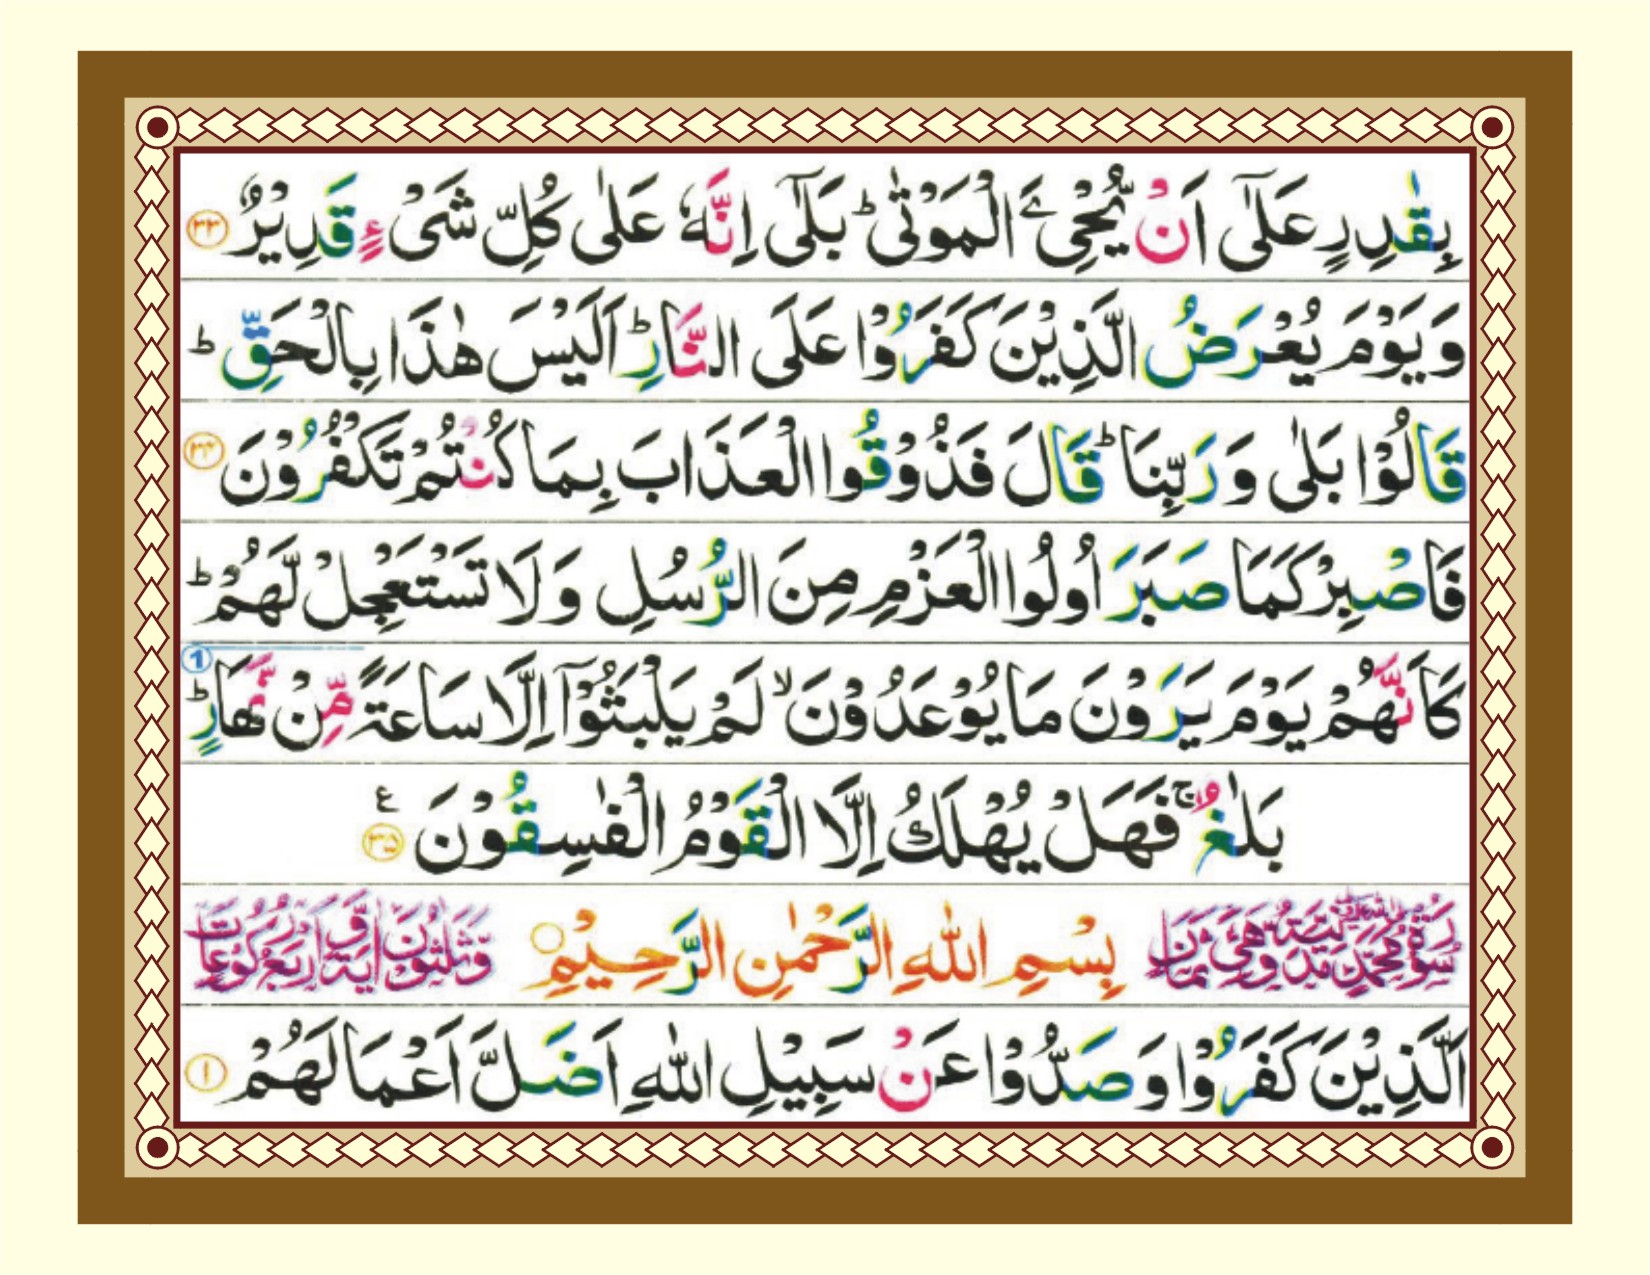 بِقٰدِرٍ عَلٰۤى اَنْ يُّحْیِۦَ الْمَوْتٰى ؕ بَلٰۤى اِنَّهٗ عَلٰى كُلِّ شَیْءٍ قَدِيْرٌ ﴿۳۳﴾
وَ يَوْمَ يُعْرَضُ الَّذِيْنَ كَفَرُوْا عَلَى النَّارِ ؕ اَلَيْسَ هٰذَا بِالْحَقِّ ؕ
قَالُوْا بَلٰى وَ رَبِّنَا ؕ قَالَ فَذُوْقُوا الْعَذَابَ بِمَا كُنْتُمْ تَكْفُرُوْنَ ﴿۳۴﴾
فَاصْبِرْ كَمَا صَبَرَ اُولُوا الْعَزْمِ مِنَ الرُّسُلِ وَ لَا تَسْتَعْجِلْ لَّهُمْ ؕ
كَاَنَّهُمْ يَوْمَ يَرَوْنَ مَا يُوْعَدُوْنَ ۙ لَمْ يَلْبَثُوْۤا اِلَّا سَاعَةً مِّنْ نَّهَارٍ ؕ ①
بَلٰغٌ ۚ فَهَلْ يُهْلَكُ اِلَّا الْقَوْمُ الْفٰسِقُوْنَ ﴿۳۵﴾ ع
بِسْمِ اللّٰهِ الرَّحْمٰنِ الرَّحِيْمِ وَثَلٰثُوْنَ اٰيَةً وَّاَرْبَعُ رُكُوْعَاتٍ
اَلَّذِيْنَ كَفَرُوْا وَ صَدُّوْا عَنْ سَبِيْلِ اللّٰهِ اَضَلَّ اَعْمَالَهُمْ ﴿۱﴾